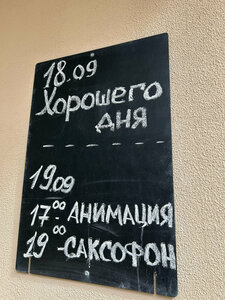 18.09
Хорошего
дня
19.09
17:00 АНИМАЦИЯ
19:00 -САКСОФОН